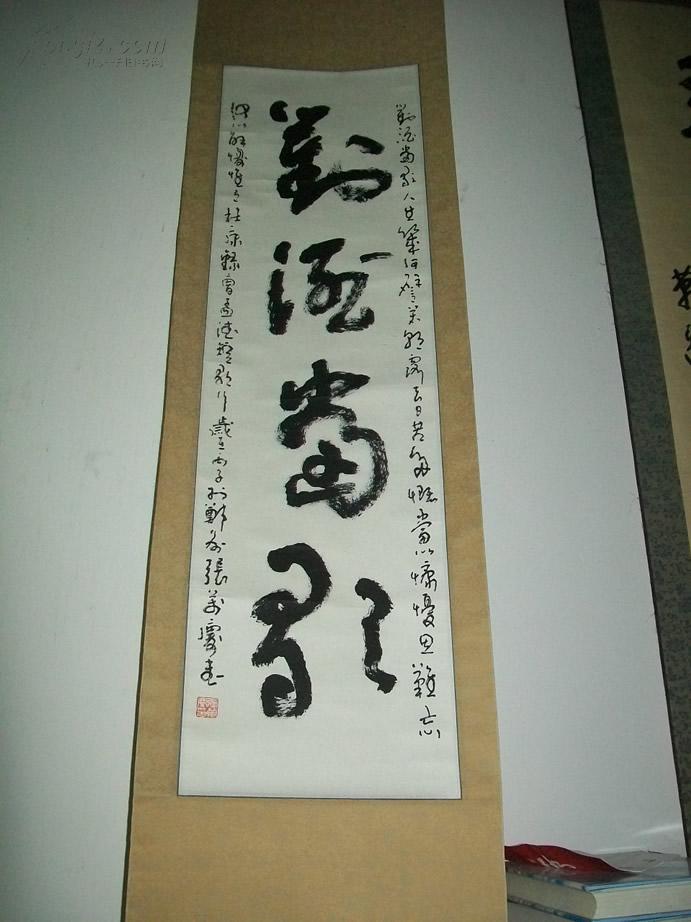 對酒當歌人生幾何譬若朝露去日苦多慨當以慷憂思難忘
對酒當歌
何以解憂惟有杜康錄曹孟德短歌行歲在丙子於鄭州張萬慶書
kongfz.com
孔夫子旧书网